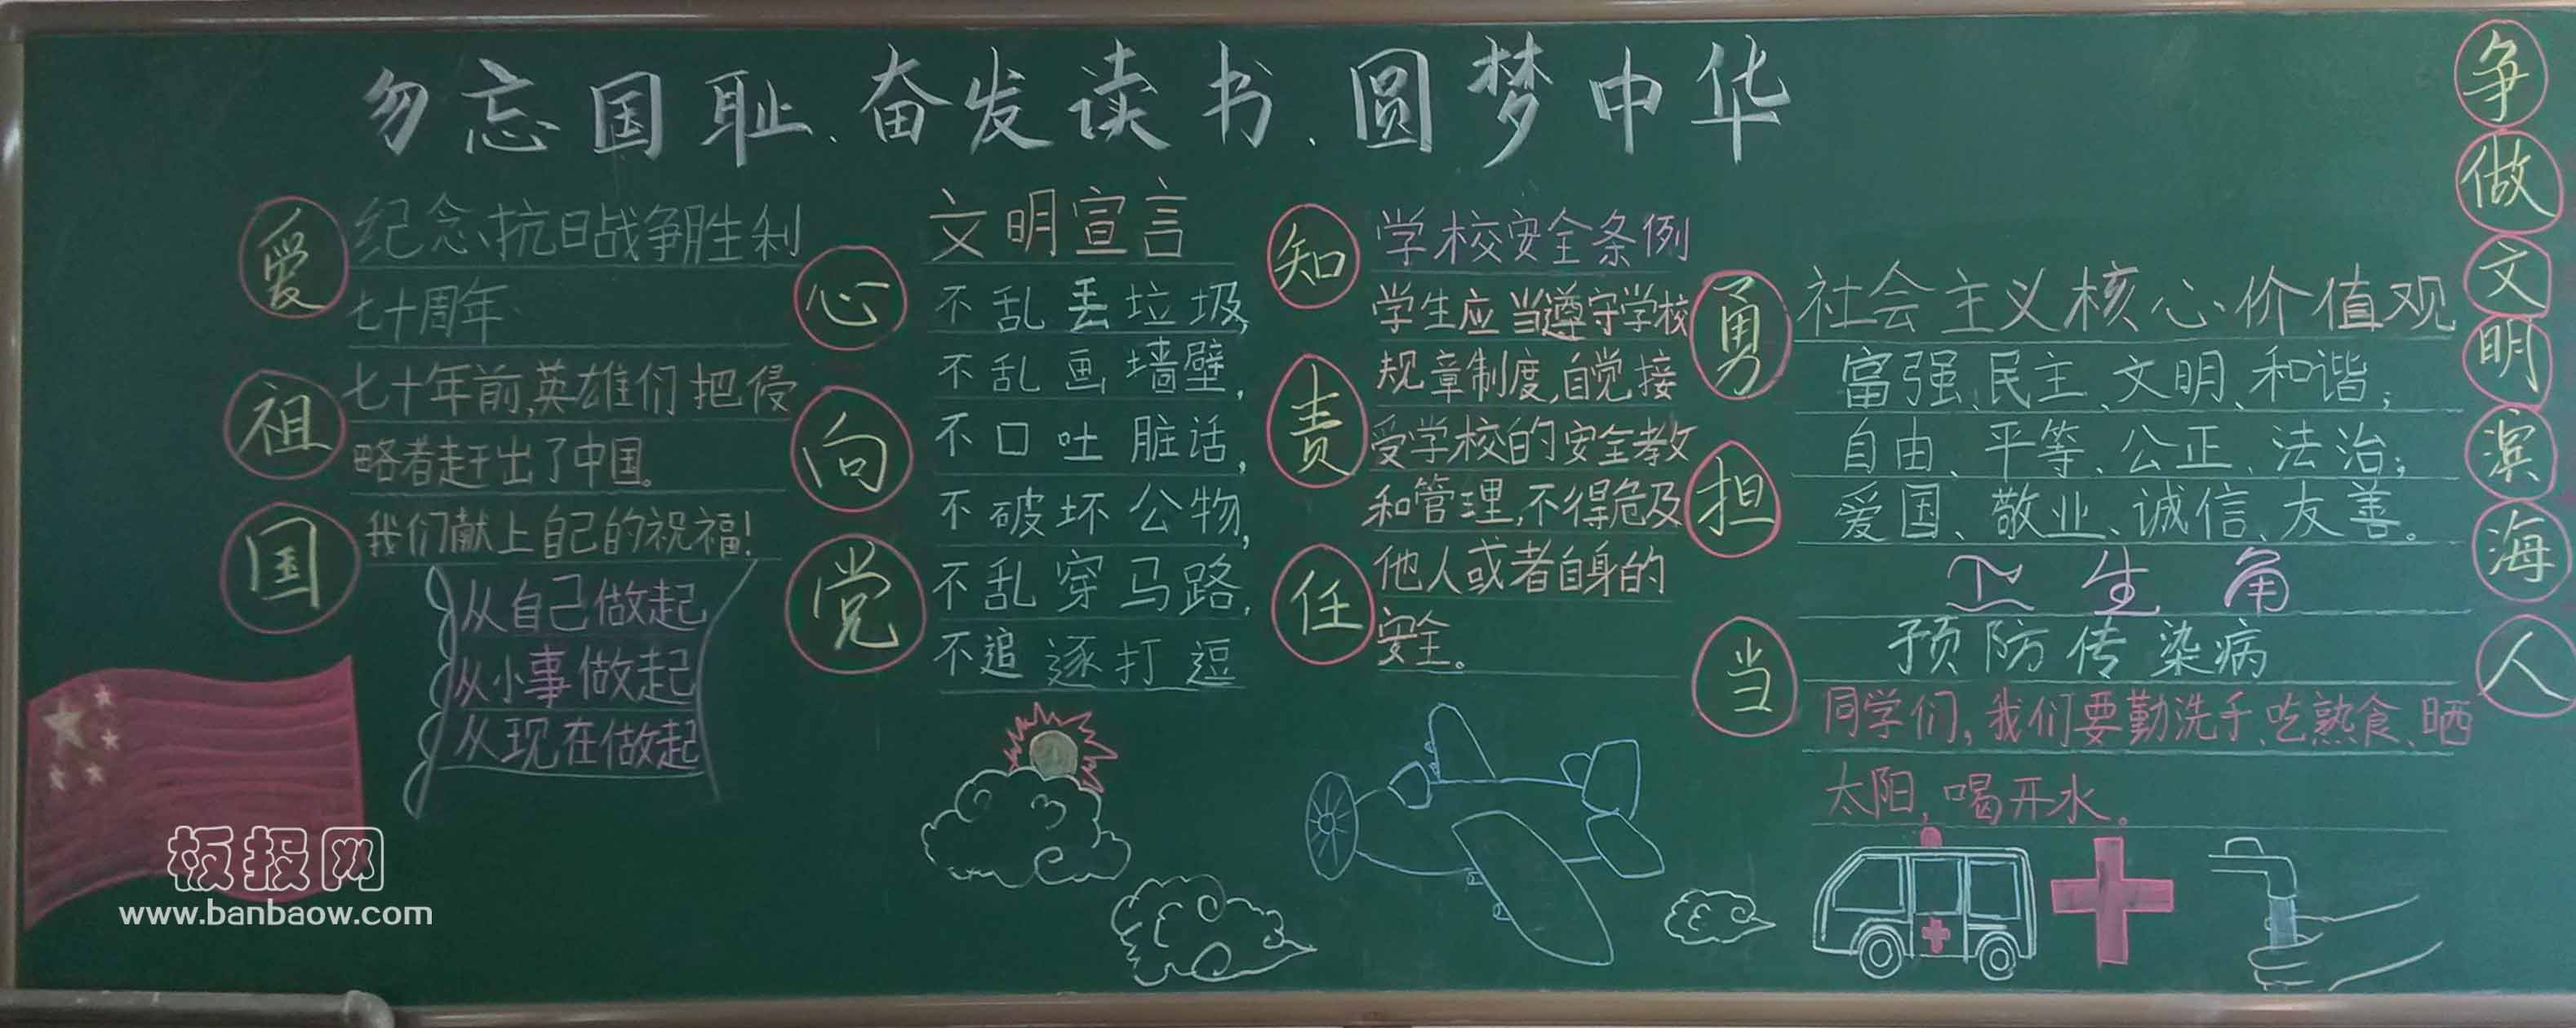 勿忘国耻、奋发读书、圆梦中华
爱祖国
纪念抗日战争胜利
七十周年
七十年前,英雄们把侵
略者赶出了中国。
我们献上自己的祝福!
从自己做起
从小事做起
从现在做起
心向党
文明宣言
不乱丢垃圾,
不乱画墙壁,
不口吐脏话,
不破坏公物,
不乱穿马路,
不追逐打逗
知责任
学校安全条例
学生应当遵守学校
规章制度,自觉接
受学校的安全教
和管理,不得危及
他人或者自身的
安全。
勇担当
社会主义核心价值观
富强、民主、文明、和谐;
自由、平等、公正、法治;
爱国、敬业、诚信、友善。
卫生角
预防传染病
同学们,我们要勤洗手、吃熟食、晒
太阳,喝开水。
争做文明滨海人
板报网
www.banbaow.com